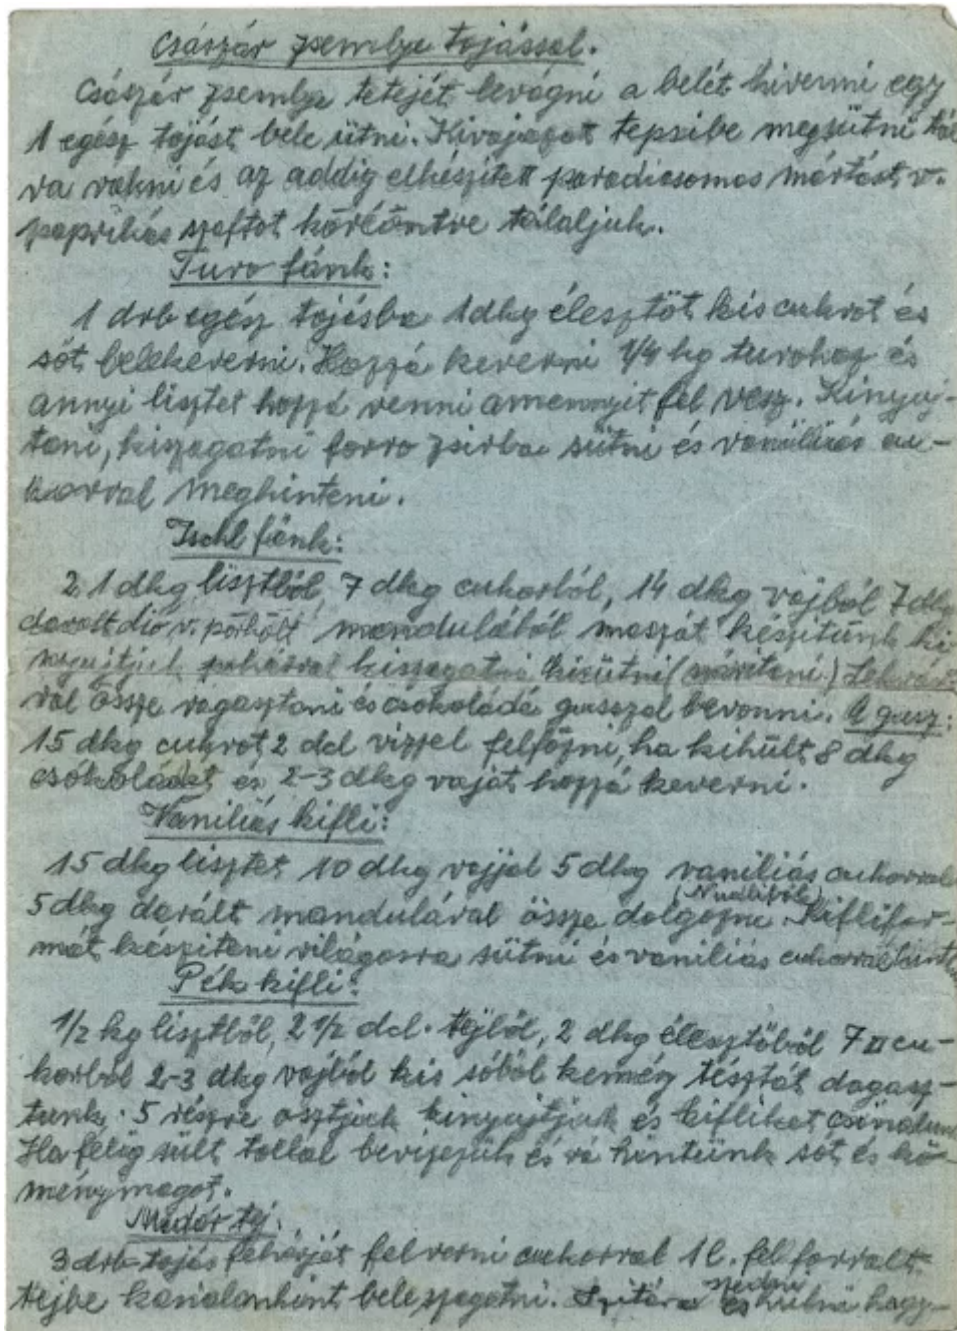 Császár zsemlye tojással.
Császár zsemlye tetejét levágni a belét kivenni egy
1 egész tojást bele ütni. Kivajazott tepsibe megsütni tál
ra rakni és az addig elkészitett paradicsomos mártást v.
paprikás szaftot köréöntve tálaljuk.
Turo fánk:
1 drb egész tojásba 1 dkg élesztöt kis cukrot és
sót belekeverni. Hozzá keverni 1/4 kg turohoz és
annyi lisztet hozzá venni amennyit fel vesz. Kinyuj-
tani, kiszagatni forro zsirba sütni és vaniliás cu-
korral meghinteni.
Ischl fánk:
21 dkg lisztböl, 7 dkg cukorból, 14 dkg vajból 7 dkg
darált dió v. pörkölt mandulából maszát készitünk ki
nyujtjuk pohárral kiszagatni kisütni (száritani) Lekvár-
ral össze ragasztani és csokoládé gusszal bevonni. A gusz:
15 dkg cukrot 2 dcl vizzel felfözni, ha kihült 8 dkg
csokoládét és 2-3 dkg vaját hozzá keverni.
Vaniliás kifli:
15 dkg lisztet 10 dkg vajjal 5 dkg vaniliás cukorral
5 dkg darált mandulával össze dolgozni Kiflifor-
mát késziteni világosra sütni és vaniliás cukorral
Pék kifli:
1/2 kg lisztböl, 2 1/2 dcl. tejböl, 2 dkg élesztöböl 7 cu-
korból 2-3 dkg vajból kis sóból kemény tésztát dagasz-
tunk. 5 részre osztjuk kinyujtjuk és kifliket csinálunk
Ha félig sült tollal bevizezük és rá hintünk sót és kö-
ménymagot.
Madár tej.
3 drb tojás fehérjét felverni cukorral 1 l. fel forralt
tejbe kanalankint beleszagatni. Szitára szedni és hülni hagy-